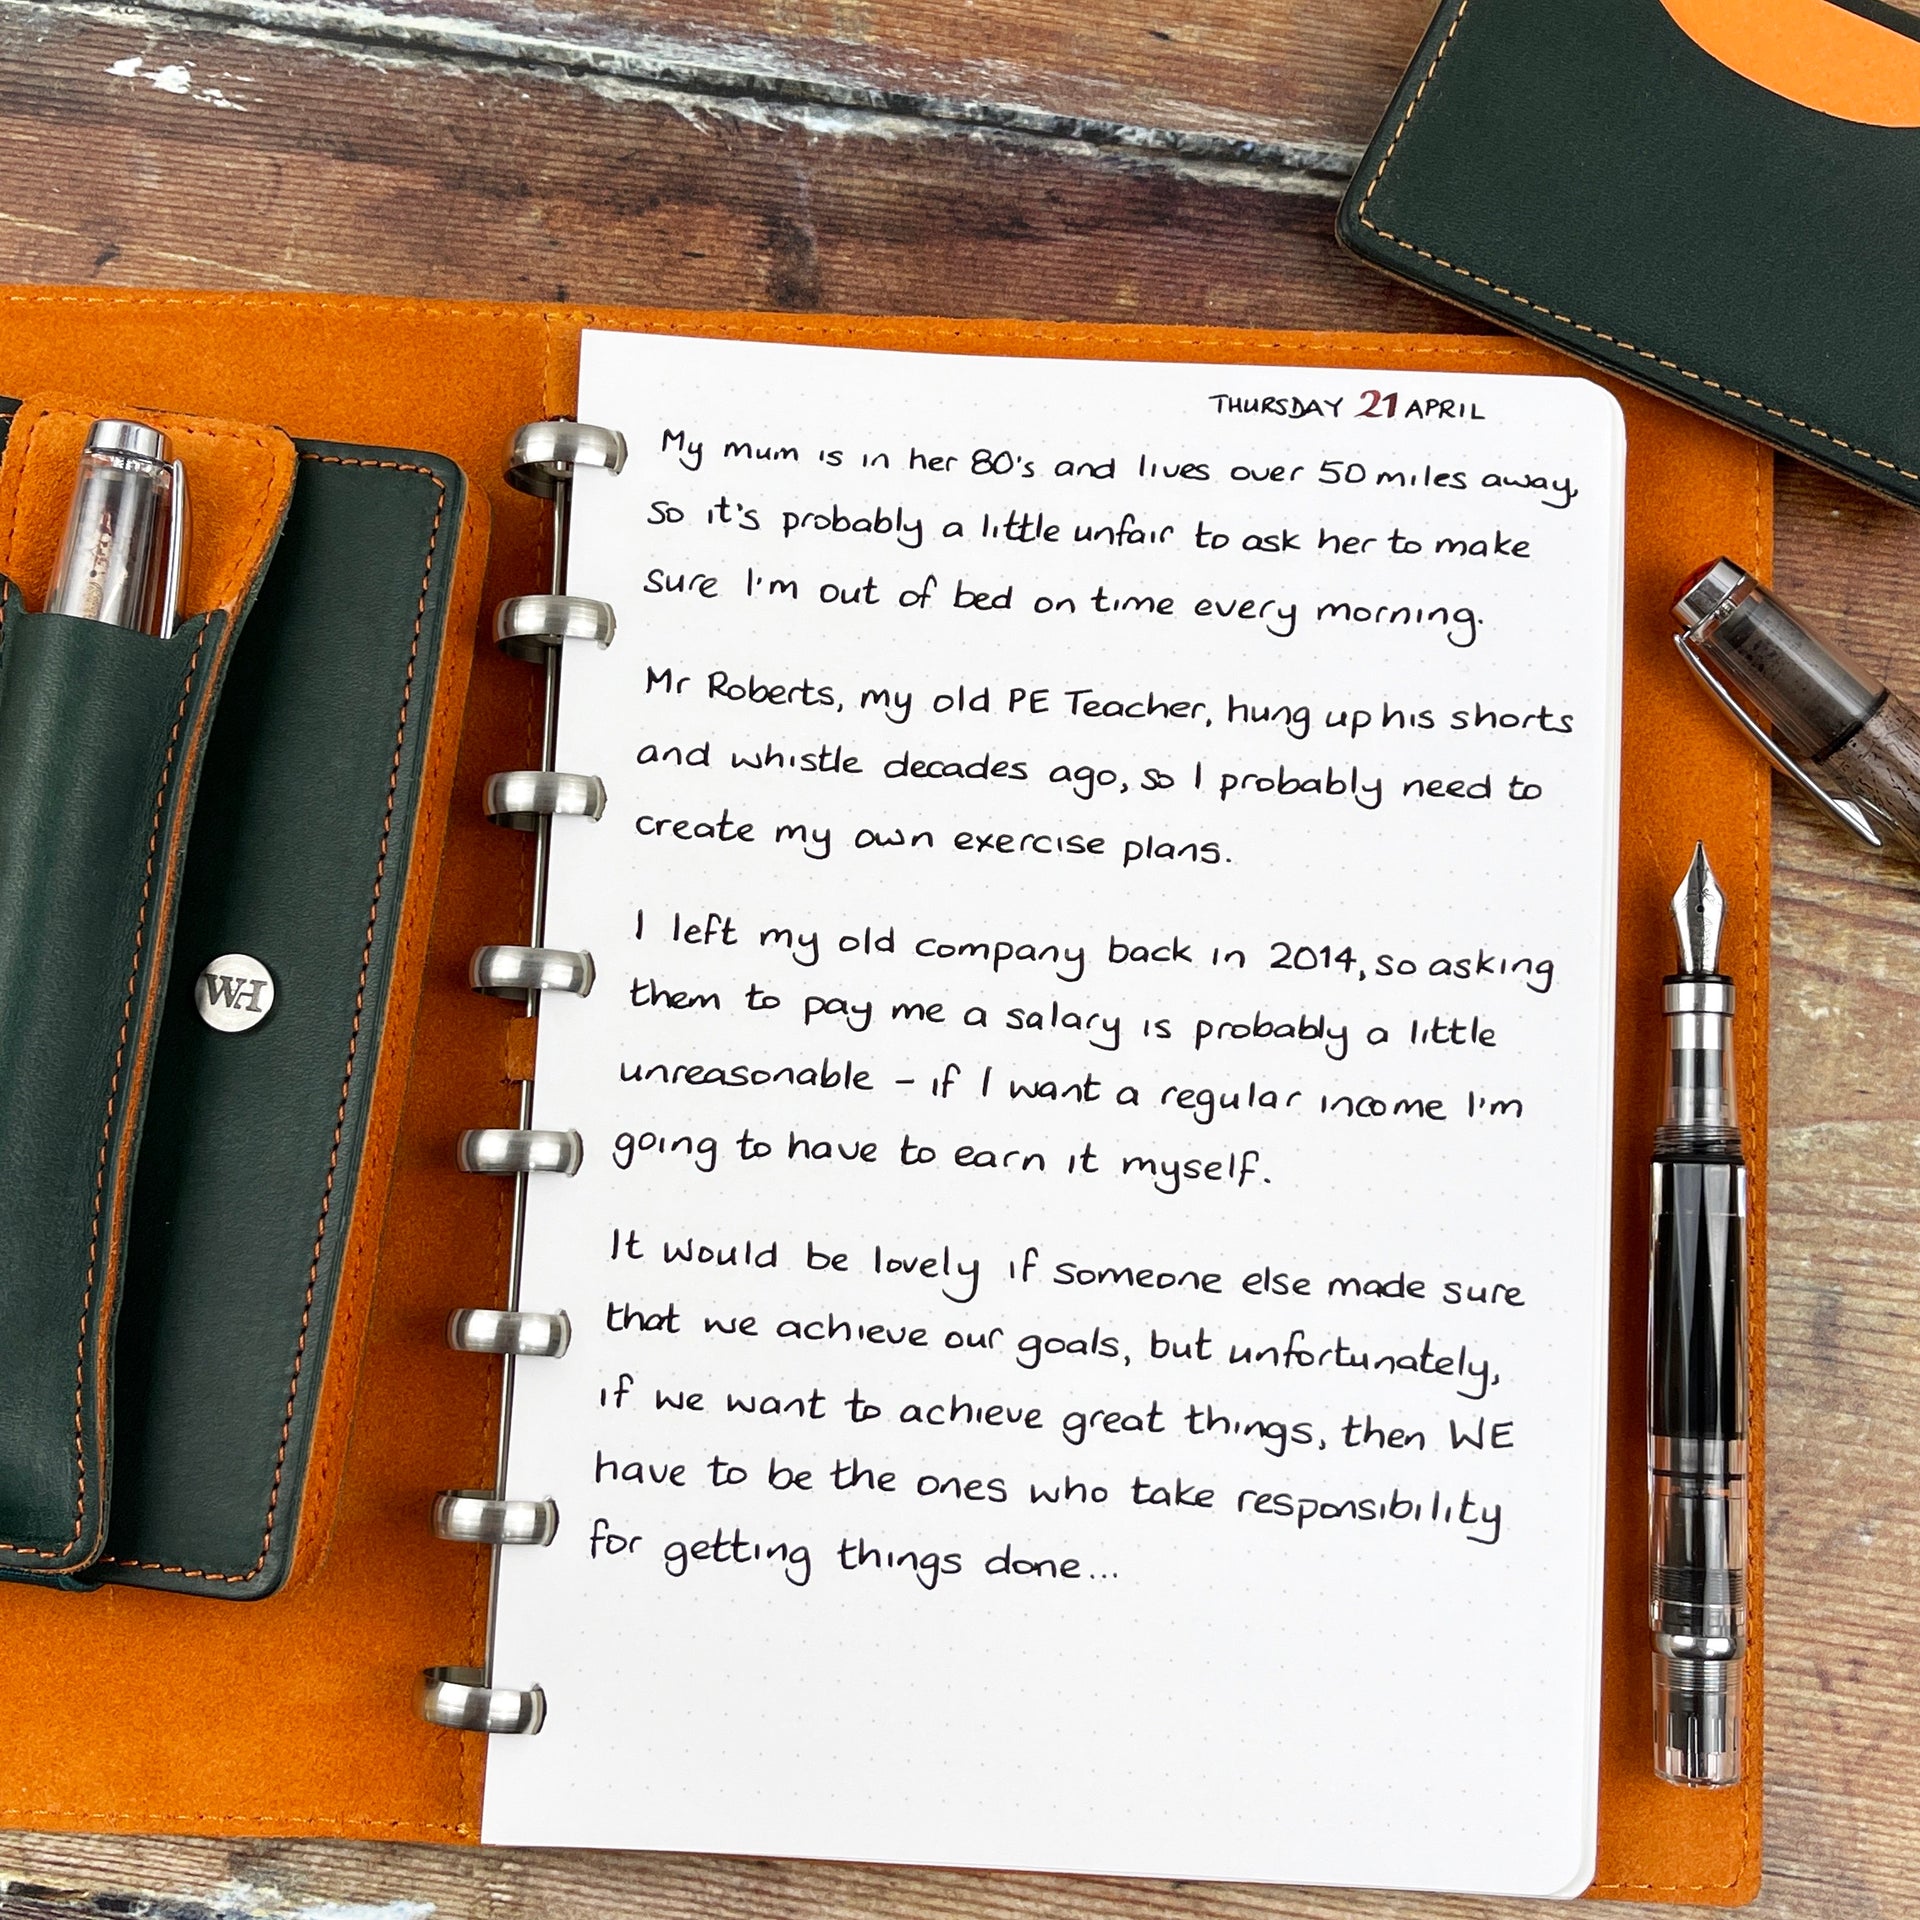 THURSDAY 21 APRIL
My mum is in her 80's and lives over 50 miles away,
so it's probably a little unfair to ask her to make
sure I'm out of bed on time every morning.
Mr Roberts, my old PE Teacher, hung up his shorts
and whistle decades ago, so I probably need to
create my own exercise plans.
I left my old company back in 2014, so asking
them to pay me a salary is probably a little
unreasonable - if I want a regular income I'm
going to have to earn it myself.
It would be lovely if someone else made sure
that we achieve our goals, but unfortunately,
if we want to achieve great things, then WE
have to be the ones who take responsibility
for getting things done...
WH